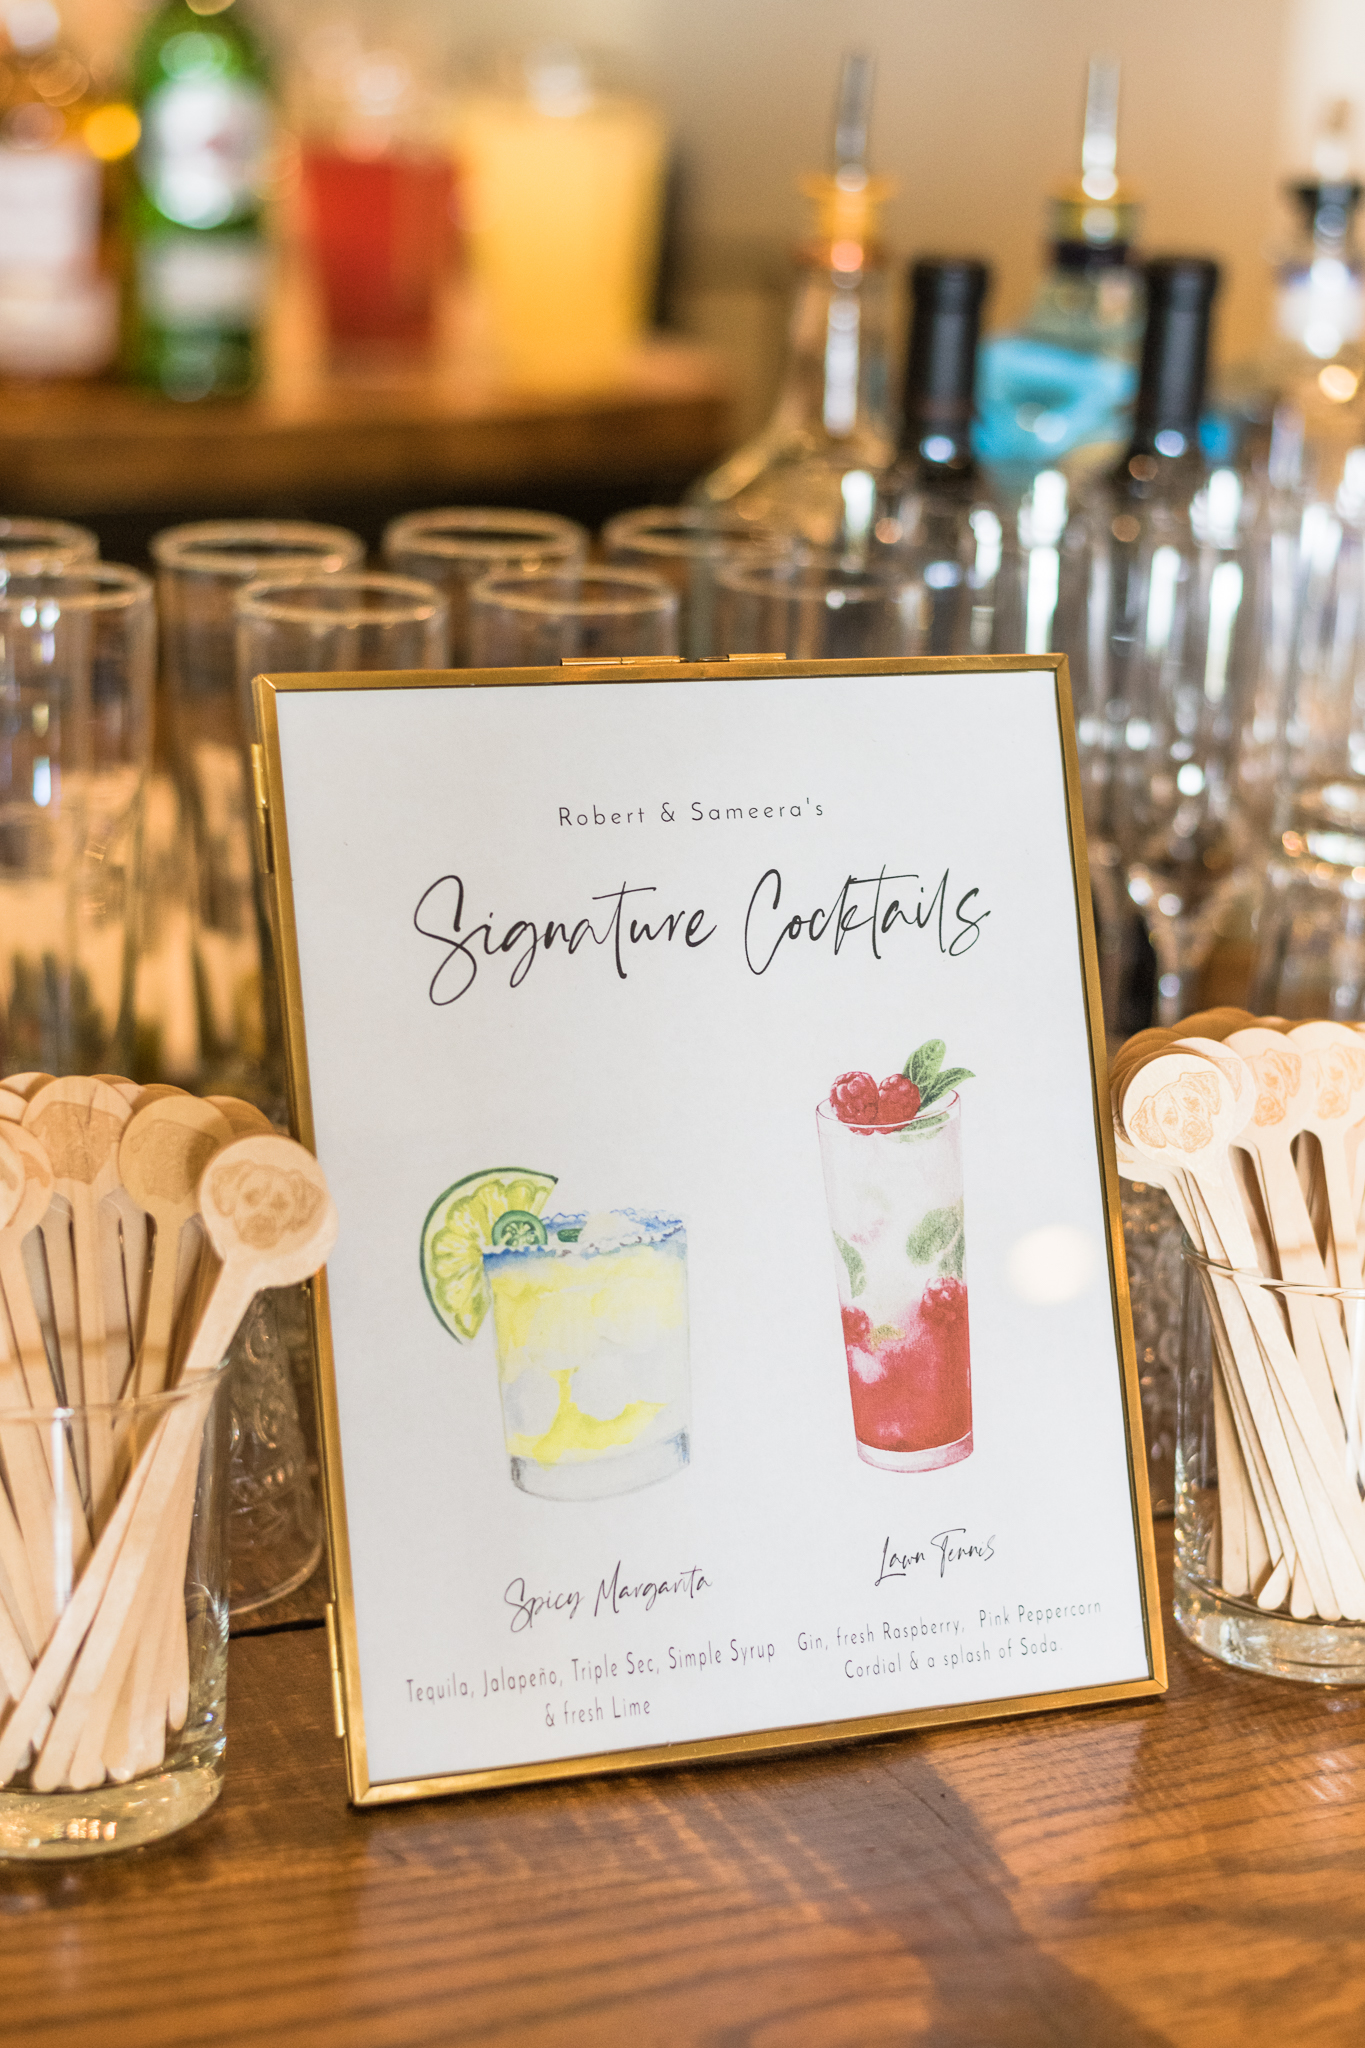 Robert & Sameera's
Signature Cocktails
Spicy Margarita
Tequila, Jalapeño, Triple Sec, Simple Syrup
& fresh Lime
Lawn Tennis
Gin, fresh Raspberry, Pink Peppercorn
Cordial & a splash of Soda.